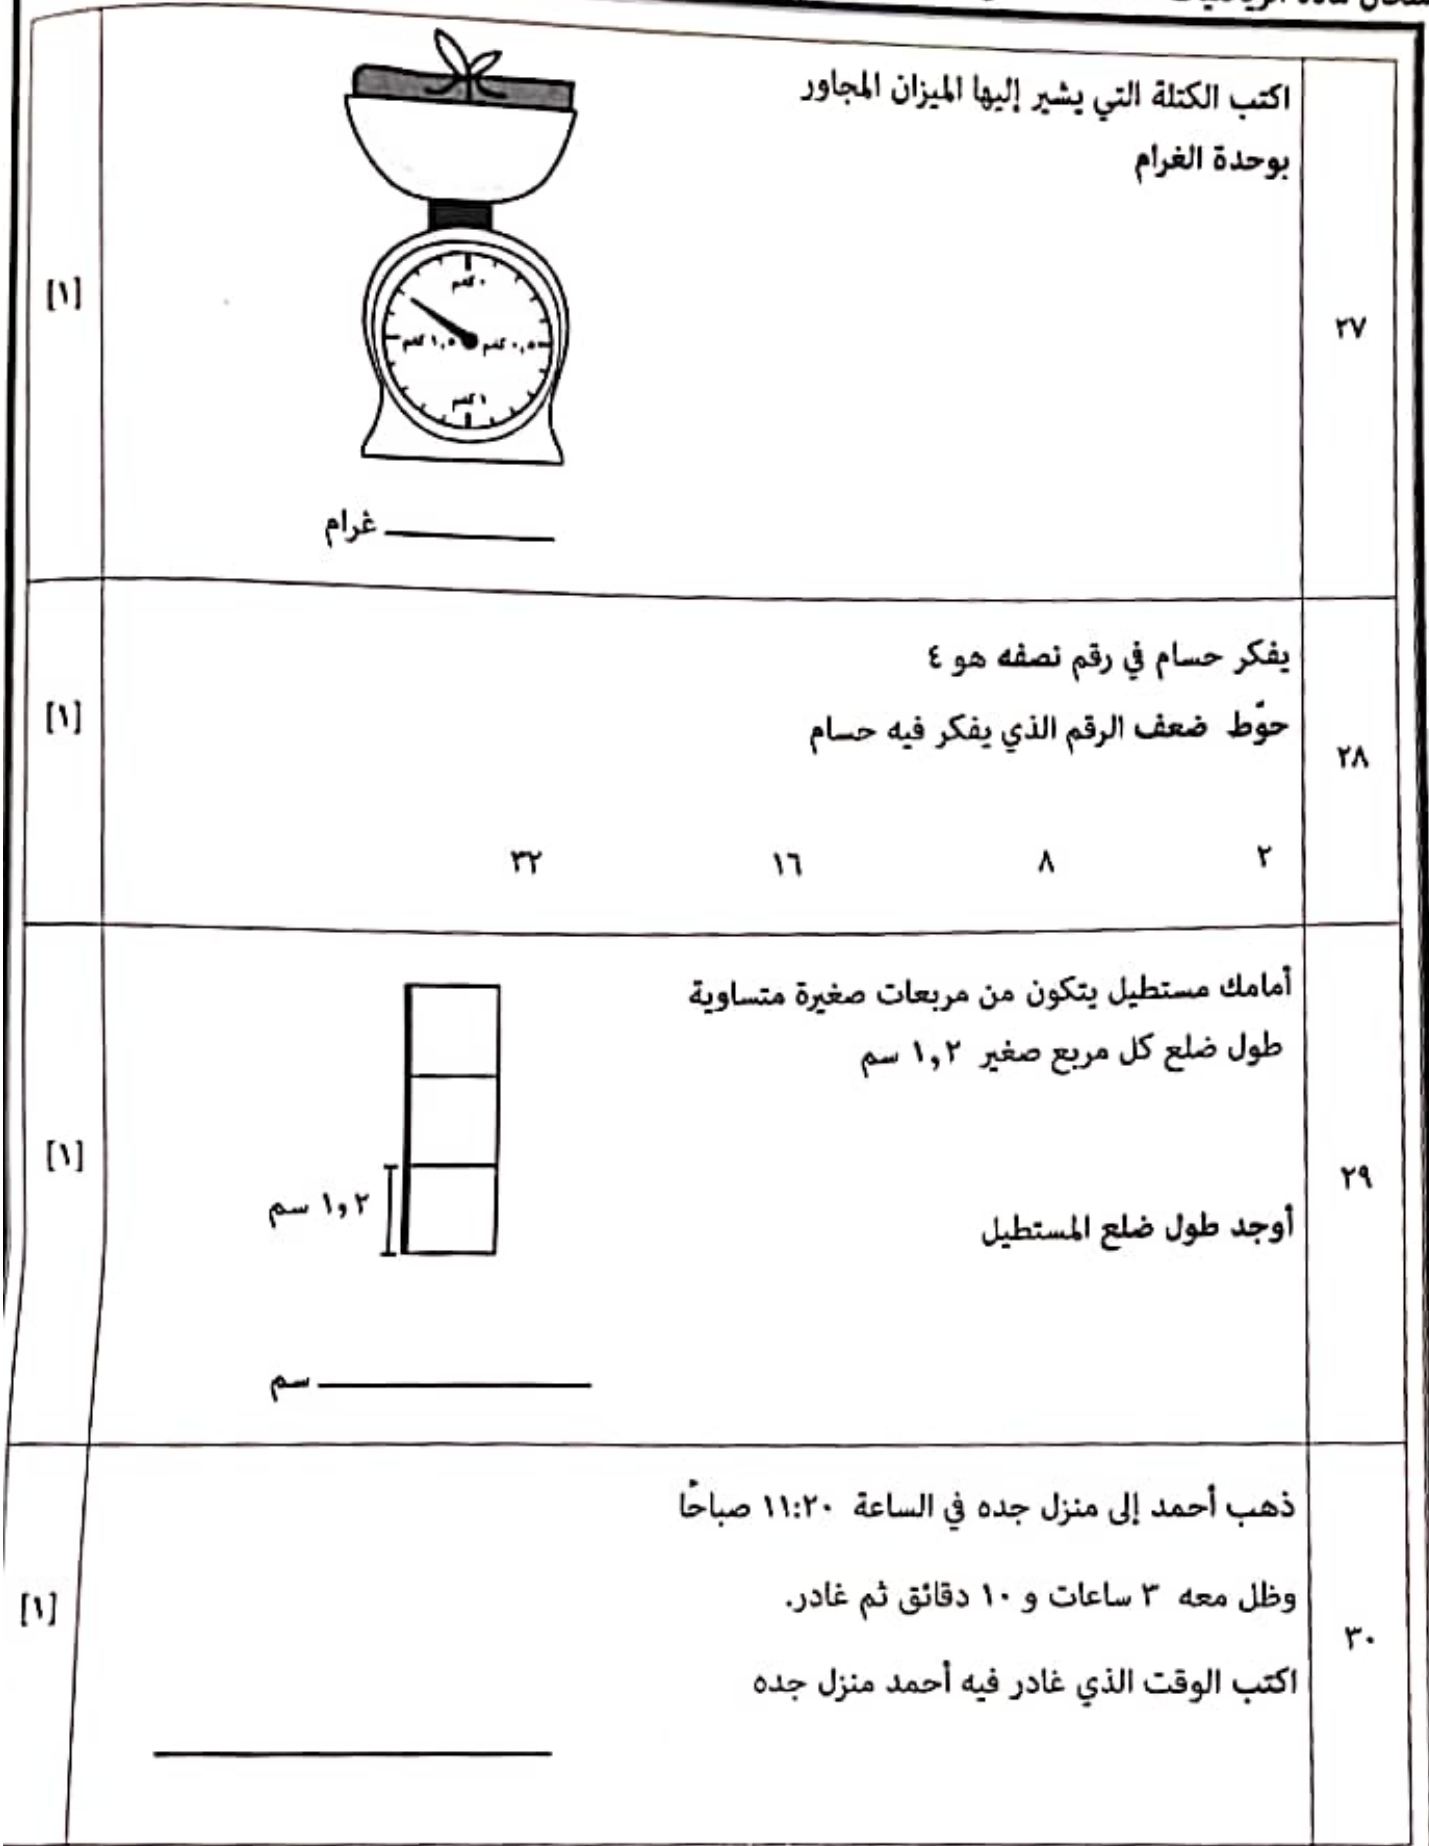 اكتب الكتلة التي يشير إليها الميزان المجاور
بوحدة الغرام
٢٧
[١]
٠ كغم
٠,٥ كغم
١,٥ كغم
١ كغم
_______ غرام
يفكر حسام في رقم نصفه هو ٤
حوّط ضعف الرقم الذي يفكر فيه حسام
٢٨
[١]
٢ ٨ ١٦ ٣٢
أمامك مستطيل يتكون من مربعات صغيرة متساوية
طول ضلع كل مربع صغير ١,٢ سم
٢٩
[١]
١,٢ سم
أوجد طول ضلع المستطيل
_______ سم
ذهب أحمد إلى منزل جده في الساعة ١١:٢٠ صباحًا
وظل معه ٣ ساعات و ١٠ دقائق ثم غادر.
٣٠
[١]
اكتب الوقت الذي غادر فيه أحمد منزل جده